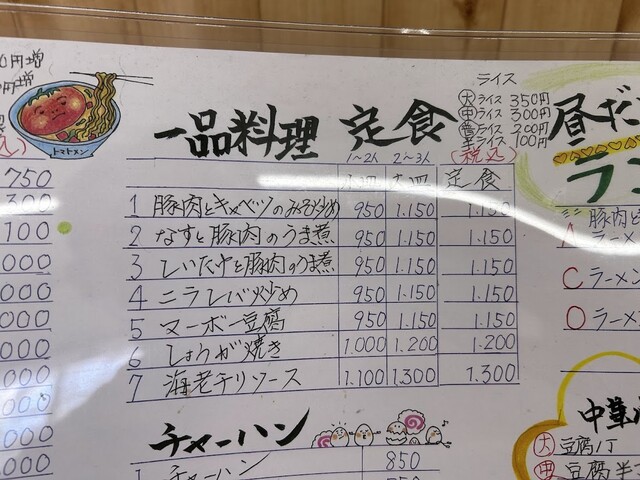 0円増
円増
トマトメン
750
300
100
000
000
000
000
000
000
000
一品料理 定食
(税込)
ライス
大 ライス 350円
中 ライス 300円
ライス 200円
半ライス 100円
1~2人 2~3人
小皿 大皿 定食
1 豚肉とキャベツのみそ炒め 950 1.150 1.150
2 なすと豚肉のうま煮 950 1.150 1.150
3 しいたけと豚肉のうま煮 950 1.150 1.150
4 ニラレバ炒め 950 1.150 1.150
5 マーボー豆腐 950 1.150 1.150
6 しょうが焼き 1.000 1.200 1.200
7 海老チリソース 1.100 1.300 1.300
チャーハン
1 チャーハン 850
昼だ
ラ
ミニ
豚肉と
A ラーメン
C ラーメン
O ラーメン
中華
大 豆腐1丁
中 豆腐半